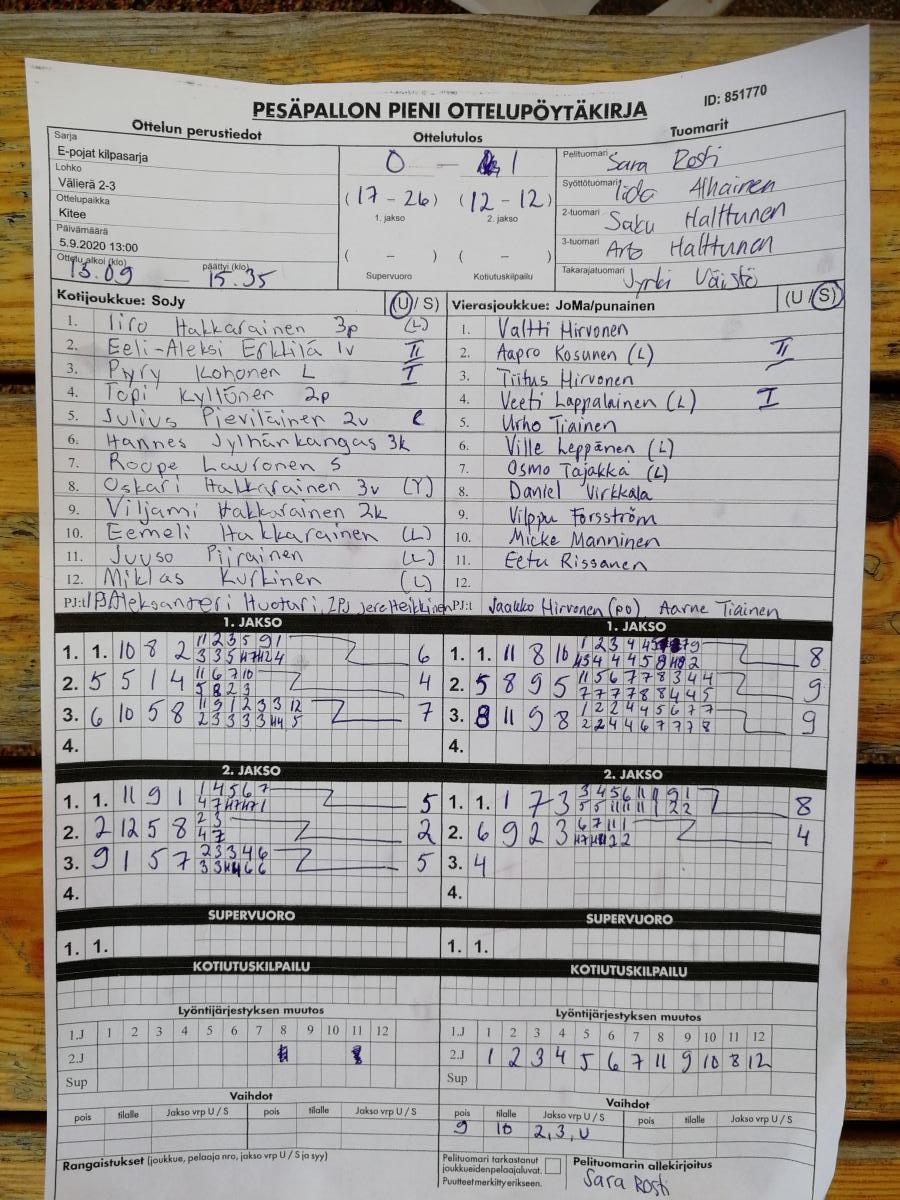 PESÄPALLON PIENI OTTELUPÖYTÄKIRJA
ID: 851770
Ottelun perustiedot
Sarja
E-pojat kilpasarja
Lohko
Välierä 2-3
Ottelupaikka
Kitee
Päivämäärä
5.9.2020 13:00
Ottelu alkoi (klo) päättyi (klo)
13.09 — 15.35
Ottelutulos
0 — 1
(17 - 26) (12 - 12)
1. jakso 2. jakso
( - ) ( - )
Supervuoro Kotiutuskilpailu
Tuomarit
Pelituomari Sara Rosti
Syöttötuomari Iida Alhainen
2-tuomari Saku Halttunen
3-tuomari Arto Halttunen
Takarajatuomari Jyrki Väistö
Kotijoukkue: SoJy (U / S)
1. Iiro Hakkarainen 3p (L)
2. Eeli-Aleksi Erkkilä 1v II
3. Pyry Kohonen L I
4. Topi Kyllönen 2p
5. Julius Pieviläinen 2v
6. Hannes Jylhänkangas 3k
7. Roope Lauronen S
8. Oskari Hakkarainen 3v (Y)
9. Viljami Hakkarainen 2k
10. Eemeli Hakkarainen (L)
11. Juuso Piirainen (L)
12. Miklas Kurkinen (L)
PJ:t 1PJ Aleksanteri Huotari, 2PJ Jere Heikkinen
Vierasjoukkue: JoMa/punainen (U / S)
1. Valtti Hirvonen
2. Aapro Kosunen (L) II
3. Tiitus Hirvonen
4. Veeti Lappalainen (L) I
5. Urho Tiainen
6. Ville Leppänen (L)
7. Osmo Tajakka (L)
8. Daniel Virkkala
9. Vilppu Forsström
10. Micke Manninen
11. Eetu Rissanen
12.
PJ:t Jaakko Hirvonen (po) Aarne Tiainen
1. JAKSO
1. 1. 10 8 2 6
2. 5 5 1 4 4
3. 6 10 5 8 7
4.
1. JAKSO
1. 1. 11 8 10 8
2. 5 8 9 5 9
3. 8 11 9 8 9
4.
2. JAKSO
1. 1. 11 9 1 5
2. 2 12 5 8 2
3. 9 1 5 7 5
4.
2. JAKSO
1. 1. 1 7 3 8
2. 6 9 2 3 4
3. 4
4.
SUPERVUORO
1. 1.
SUPERVUORO
1. 1.
KOTIUTUSKILPAILU
KOTIUTUSKILPAILU
Lyöntijärjestyksen muutos
1.J 1 2 3 4 5 6 7 8 9 10 11 12
2.J
Sup
Lyöntijärjestyksen muutos
1.J 1 2 3 4 5 6 7 8 9 10 11 12
2.J 1 2 3 4 5 6 7 11 9 10 8 12
Sup
Vaihdot
pois tilalle Jakso vrp U / S pois tilalle Jakso vrp U / S
Vaihdot
pois tilalle Jakso vrp U / S pois tilalle Jakso vrp U / S
9 10 2, 3, U
Rangaistukset (joukkue, pelaaja nro, jakso vrp U / S ja syy)
Pelituomari tarkastanut
joukkueiden pelaajaluvat.
Puutteet merkitty erikseen.
Pelituomarin allekirjoitus
Sara Rosti